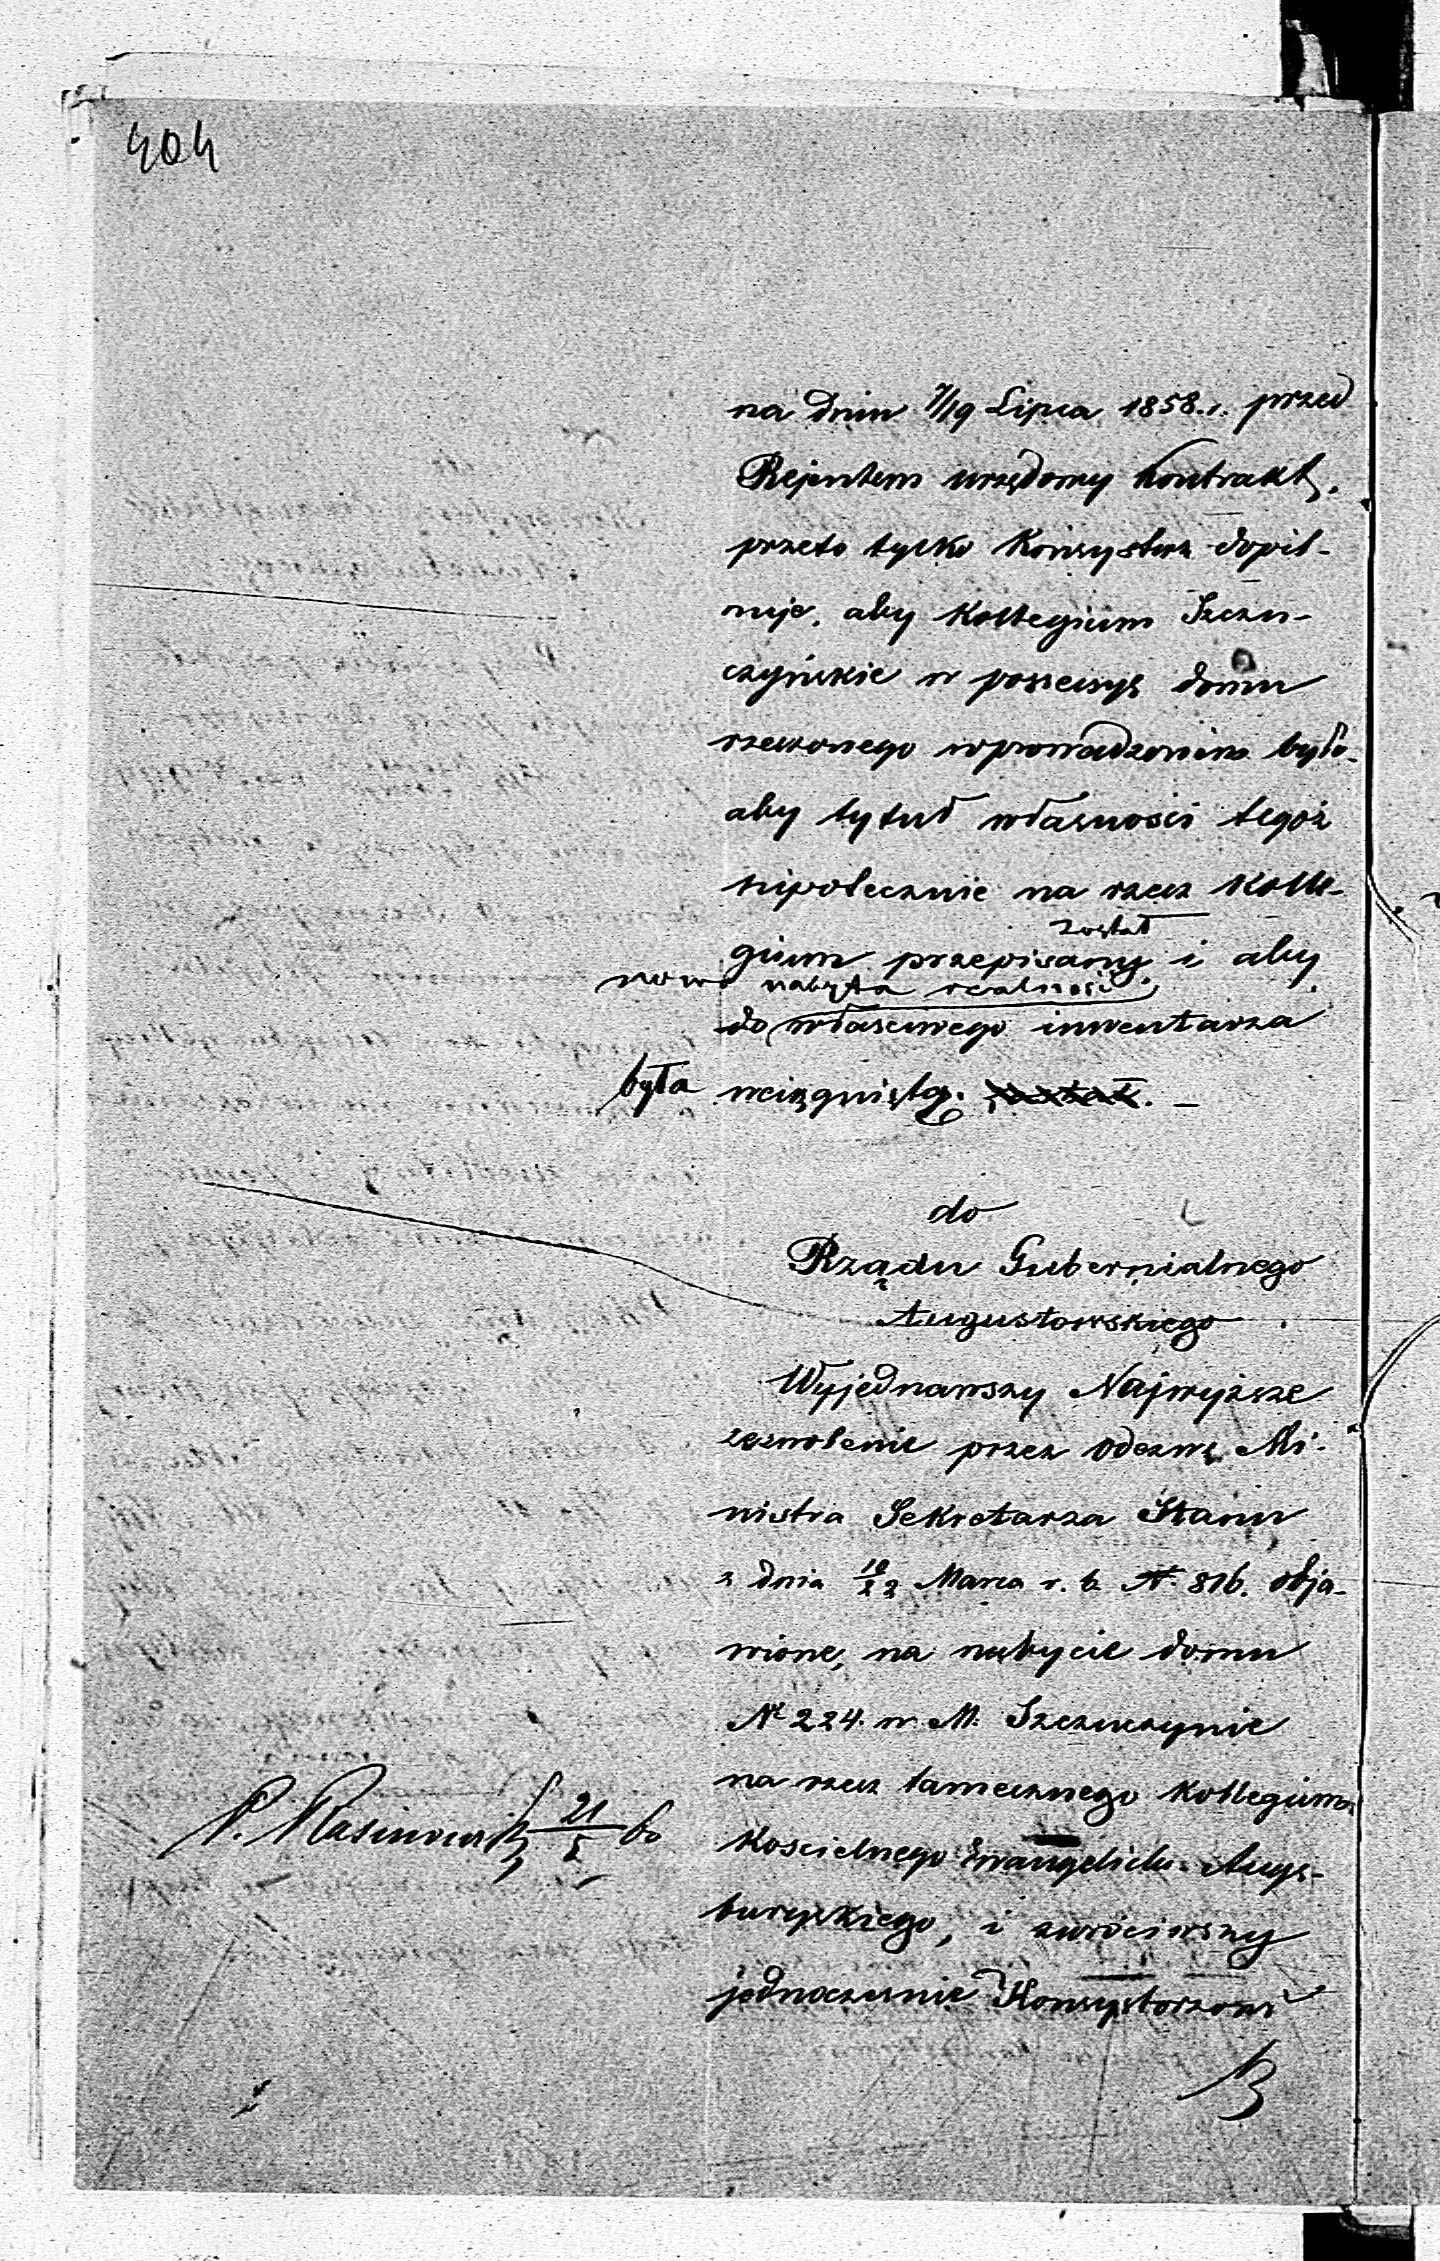 404
na dniu 7/19 Lipca 1858.r. przed
Rejentem urzędowy kontrakt,
przeto tylko Konsystorz dopil-
nuje, aby Kollegium Szczu-
czyńskie w possessyę domu
rzeczonego wprowadzonem było,
aby tytuł własności tegoż
hipotecznie na rzecz Kolle-
został
gium przepisany, i aby
nowo nabyta realność
do właściwego inwentarza
była wciągniętą. został. –
do
Rządu Gubernialnego
Augustowskiego
Wyjednawszy Najwyższe
zezwolenie przez odezwę Mi-
nistra Sekretarza Stanu
z dnia 10/22 Marca r. b. N. 816. obja-
wione, na nabycie domu
Nr 224. w M. Szczuczynie
na rzecz tamecznego Kollegium
Kościelnego Ewangelicko Augs-
burgskiego, i zwróciwszy
jednocześnie Konsystorzowi
21/5 60